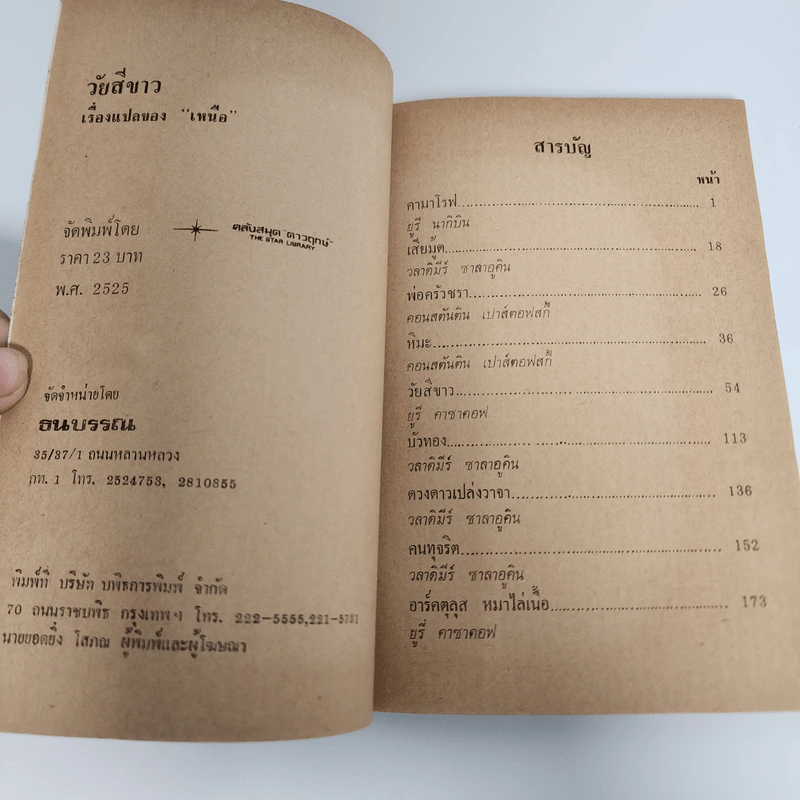 วัยสีขาว
เรื่องแปลของ “เหนือ”
จัดพิมพ์โดย
คลังสมุด “ดาวฤกษ์”
THE STAR LIBRARY
ราคา 23 บาท
พ.ศ. 2525
จัดจำหน่ายโดย
ธนบรรณ
35/37/1 ถนนหลานหลวง
กท. 1 โทร. 2524753, 2810855
พิมพ์ที่ บริษัท บพิธการพิมพ์ จำกัด
70 ถนนราชบพิธ กรุงเทพฯ โทร. 222-5555,221-5781
นายยอดยิ่ง โสภณ ผู้พิมพ์และผู้โฆษณา
สารบัญ
หน้า
คามาโรฟ 1
ยูรี นากิบิน
เสียมู้ด 18
วลาดิมีร์ ซาลาอูคิน
พ่อครัวชรา 26
คอนสตันติน เปาส์ตอฟสกี้
หิมะ 36
คอนสตันติน เปาส์ตอฟสกี้
วัยสีขาว 54
ยูรี คาซาคอฟ
บัวทอง 113
วลาดิมีร์ ซาลาอูคิน
ดวงดาวเปล่งวาจา 136
วลาดิมีร์ ซาลาอูคิน
คนทุจริต 152
วลาดิมีร์ ซาลาอูคิน
อาร์คตุลุส หมาไล่เนื้อ 173
ยูรี่ คาซาคอฟ